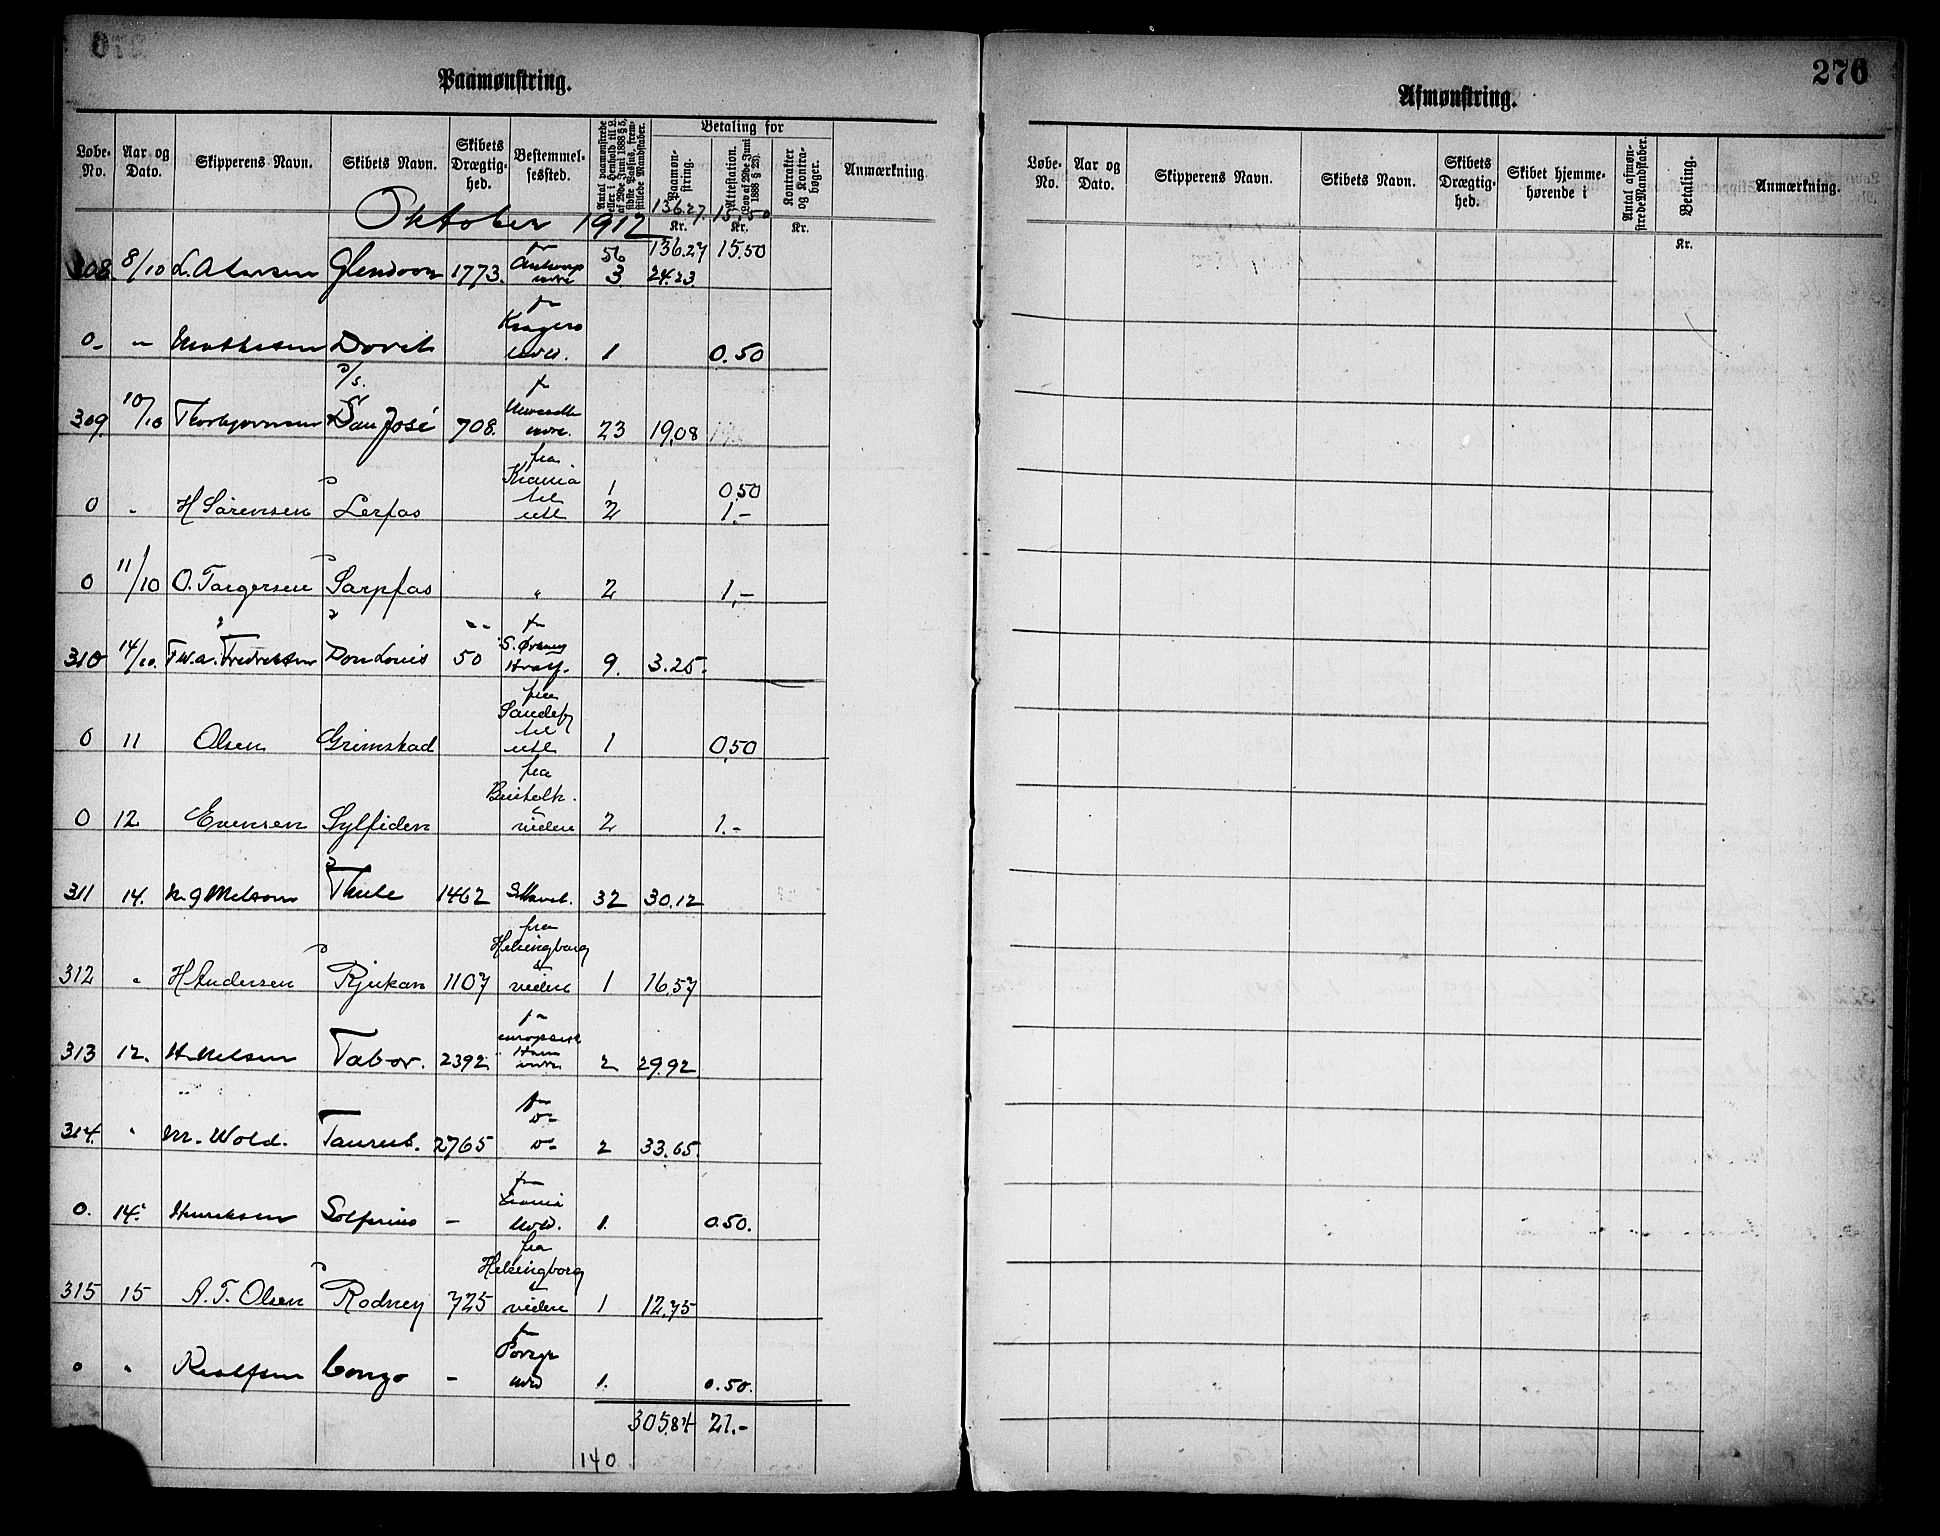 Paamønstring.
Løbe-No. Aar og Dato. Skipperens Navn. Skibets Navn. Skibets Drægtig-hed. Bestemmel-sessted. Antal paamønstrede eller i Henhold til L. af 29de Juni 1888 § 5, sidste Passus, frem-stillede Mandskaber. Betaling for Paamøn-string. Kr. Attestation. (Lov af 29de Juni 1888 § 23). Kr. Kontrakter og Kontra-bøger. Kr. Anmærkning.
136.27 15.50
Oktober 1912
56 136.27 15.50
308. 8/10 Glendoon 1773. 3 24.23
fr
Kragerø
0 - " Dovre 1 0.50
S/S.
309. 10/10 Thorbjørnsen San José 708. 23 19.08
fra
Kr.ania
til 1 0,50
0 " H Sørensen Lerfos utl 2 1.-
0 11/10 O. Torgersen Sarpfos " 2 1,-
310 14/10. Fredriksen Don Louis 50 9. 3.25.
fra
Sandefj
til
0 11 Olsen Grimstad utl 1 0,50
fra
0 12 Evensen Sylfiden videre 2 1.-
311 14. Thule 1462 32 30.12
fra
Helsingborg
312 " H Andersen Rjukan 1107 videre 1 16,57
fr
europæisk
Havn
313 12. H. Nielsen Tabor. 2392. 2 29.92
314. " M. Wold. Taurus. 2765 2 33.65.
fra
0. 14. Henriksen Solferino - 1. 0.50.
fra
Helsingborg
315 15 A. T. Olsen Rodney 725 videre 1 12,75
fr
0 " Congo - 1. 0.50.
305.84 21.-
140
270
Afmønstring.
Løbe-No. Aar og Dato. Skipperens Navn. Skibets Navn. Skibets Drægtig-hed. Skibet hjemme-hørende i Antal afmøn-strede Mandskaber. Betaling. Kr. Anmærkning.